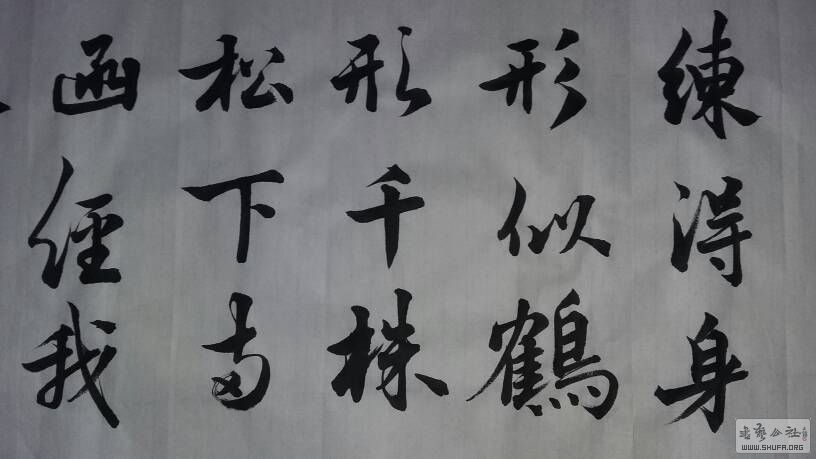 練得身
形似鶴
形千株
松下两
函經我
书艺公社
WWW.SHUFA.ORG